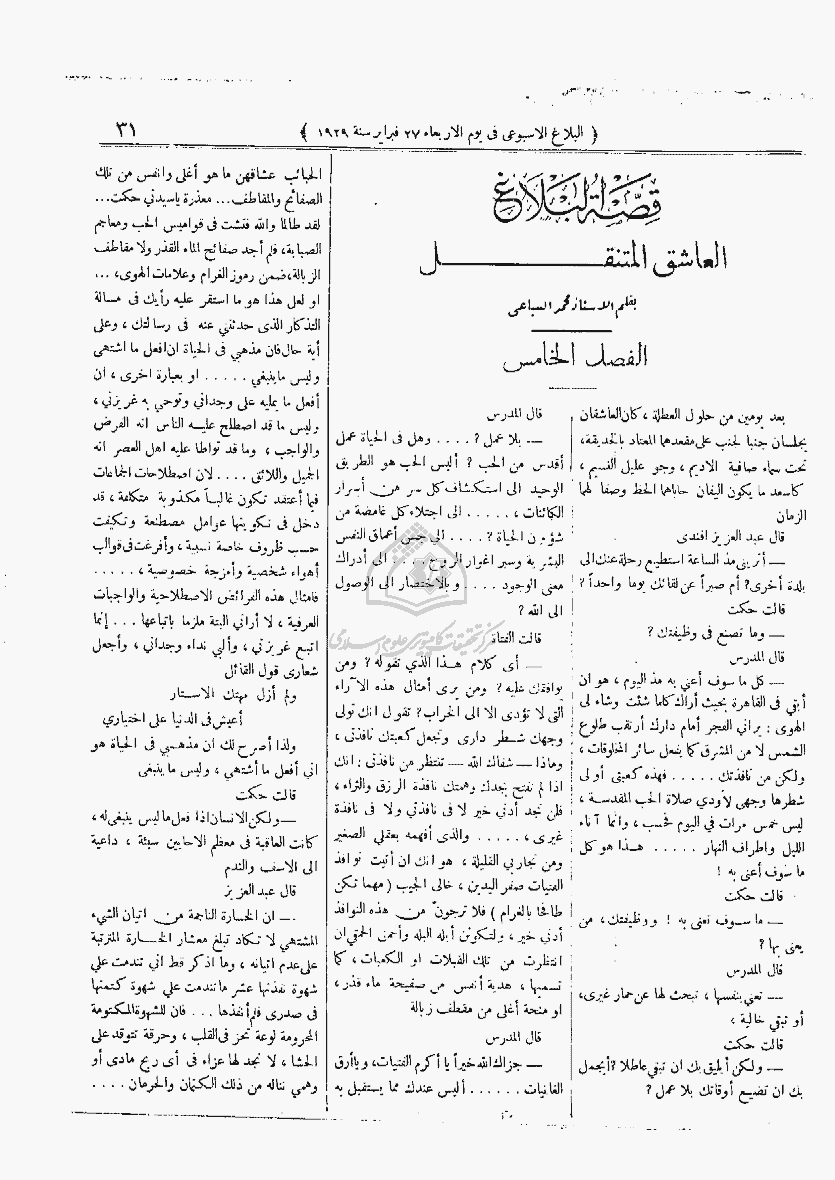 ﴿ البلاغ الاسبوعى فى يوم الاربعاء ٢٧ فبراير سنة ١٩٢٩ ﴾
٣١
قصة البلاغ
العاشق المتنقل
بقلم الاستاذ محمد السباعى
الفصل الخامس
بعد يومين من حلول العطلة ، كان العاشقان
يجلسان جنبا لجنب على مقعدهما المعتاد بالحديقة،
تحت سماء صافية الاديم ، وجو عليل النسيم ،
كاسعد ما يكون اليفان حاباهما الحظ وصفا لهما
الزمان
قال عبد العزيز افندى
— أتريننى مذ الساعة استطيع رحلة عنك الى
بلدة أخرى ? أم صبراً عن لقائك يوما واحداً ?
قالت حكت
— وما تصنع فى وظيفتك ?
قال المدرس
— كل ما سوف أعنى به مذ اليوم ، هو ان
أبقى فى القاهرة بحيث أراك كلما شئت وشاء لى
الهوى : يرانى الفجر أمام دارك أرتقب طلوع
الشمس لا من المشرق كما يفعل سائر المخلوقات ،
ولكن من نافذتك ..... فهذه كعبتى أولى
شطرها وجهى لأودي صلاة الحب المقدسة ،
ليس خمس مرات في اليوم فحسب ، وانما آناء
الليل واطراف النهار ..... هذا هو كل
ما سوف أعنى به !
قالت حكت
— ما سوف تعنى به ! ووظيفتك ، من
يعنى بها ?
قال المدرس
— تعنى بنفسها ، تبحث لها عن حمار غيرى،
أو تبقى خالية ،
قالت حكت
— ولكن أيليق بك ان تبقي عاطلا ? أيجمل
بك ان تضيع أوقاتك بلا عمل ?
قال المدرس
— بلا عمل ? .... وهل فى الحياة عمل
أقدس من الحب ? أليس الحب هو الطريق
الوحيد الى استكشاف كل سر من أسرار
الكائنات ، ..... الى اجتلاء كل غامضة من
شؤون الحياة ? .... الى جس أعماق النفس
البشرية وسبر اغوار الروح .... الى أدراك
معنى الوجود .... وبالاختصار الى الوصول
الى الله ?
قالت الفتاة
— أى كلام هذا الذي تقوله ? ومن
يوافقك عليه ? ومن يرى أمثال هذه الآراء
التى لا تؤدى الا الى الخراب ? تقول انك تولى
وجهك شطر دارى وتجعل كعبتك نافذتى ،
وماذا — شفاك الله — تنتظر من نافذتى : انك
اذا لم تفتح بجدك وهمتك نافذة الرزق والثراء ،
فلن تجد أدني خير لا فى نافذتي ولا فى نافذة
غيرى ، ..... والذى أفهمه بعقلي الصغير
ومن تجاربي القليلة ، هو انك ان أتيت نوافذ
الفتيات صفر اليدين ، خالى الجيب ( مهما تكن
طافحا بالغرام ) فلا ترجون من هذه النوافذ
أدني خير ، ولتكونن أبله البله وأحمق الحمقى ان
انتظرت من تلك القبلات او الكعبات ، كما
تسميها ، هدية أنفس من صفيحة ماء قذر ،
او منحة أغلى من مقطف زبالة
قال المدرس
— جزاك الله خيراً يا أكرم الفتيات ، ويا أرق
الغانيات ...... أليس عندك مما يستقبل به
الحبائب عشاقهن ما هو أغلى وانفس من تلك
الصفائح والمقاطف... معذرة ياسيدتي حكت...
لقد طالما والله فتشت فى قواميس الحب ومعاجم
الصبابة، فلم أجد صفائح الماء القذر ولا مقاطف
الزبالة، ضمن رموز الغرام وعلامات الهوى، ...
او لعل هذا هو ما استقر عليه رأيك فى مسألة
التذكار الذى حدثتني عنه فى رسالتك ، وعلى
أية حال فان مذهبي فى الحياة ان افعل ما اشتهى
وليس ما ينبغي ..... او بعبارة اخرى ، ان
أفعل ما يمليه على وجداني وتوحي به غريزتي ،
وليس ما قد اصطلح عليه الناس انه الفرض
والواجب ، وما قد تواطأ عليه اهل العصر انه
الجميل واللائق .... لان اصطلاحات الجماعات
فيما أعتقد تكون غالباً مكذوبة متكلفة ، قد
دخل فى تكوينها عوامل مصطنعة وتكيفت
حسب ظروف خاصة نسبية ، وأفرغت فى قوالب
أهواء شخصية وأمزجة خصوصية ،.....
فامثال هذه الفرائض الاصطلاحية والواجبات
العرفية ، لا أراني البتة ملزما باتباعها ... إنما
اتبع غريزتي ، وألبي نداء وجداني ، وأجعل
شعارى قول القائل
ولم أزل مهتك الاستار
أعيش فى الدنيا على اختياري
ولذا أصرح لك ان مذهبي فى الحياة هو
انى أفعل ما أشتهي ، وليس ما ينبغى
قالت حكت
— ولكن الانسان اذا فعل ما ليس ينبغى له ،
كانت العاقبة فى معظم الاحايين سيئة ، داعية
الى الاسف والندم
قال عبد العزيز
— ان الخسارة الناجمة من اتيان الشيء
المشتهي لا تكاد تبلغ معشار الخسارة المترتبة
على عدم اتيانه ، وما اذكر قط انى تندمت علي
شهوة نفذتها عشر ما تندمت علي شهوة كتمتها
فى صدرى فلم أنفذها ... فان للشهوة المكتومة
المحرومة لوعة تحز فى القلب ، وحرقة تتوقد على
الحشا ، لا تجد لها عزاء فى أى ربح مادى أو
وهمي نناله من ذلك الكتمان والحرمان ....
مركز تحقيقات كامپيوترى علوم اسلامى